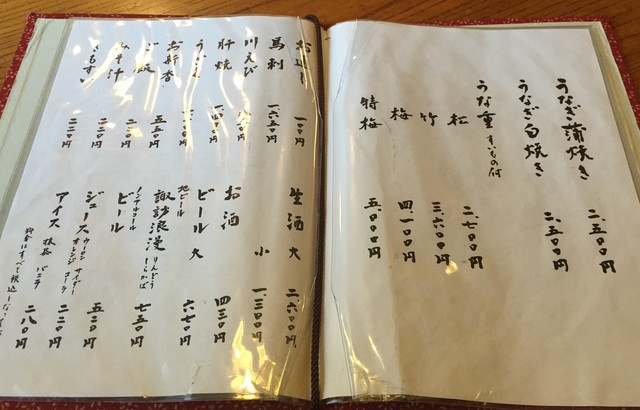 うなぎ蒲焼き 二、五〇〇円
うなぎ白焼き 二、五〇〇円
うな重 きも吸付
松 二、七〇〇円
竹 三、六〇〇円
梅 四、一〇〇円
特梅 五、〇〇〇円
お通し 一〇〇円
馬刺 一、六五〇円
川えび
肝焼
ご飯 五五〇円
お新香
みそ汁 二二〇円
きもすい 二二〇円
生酒 大 二、六〇〇円
小 一、三〇〇円
お酒 四三〇円
ビール 大 六七〇円
地ビール
諏訪浪漫 りんどう しらかば 七五〇円
ノンアルコール
ビール 五〇〇円
ジュース ウーロン サイダー オレンジ コーラ 二二〇円
アイス 抹茶 バニラ 二八〇円